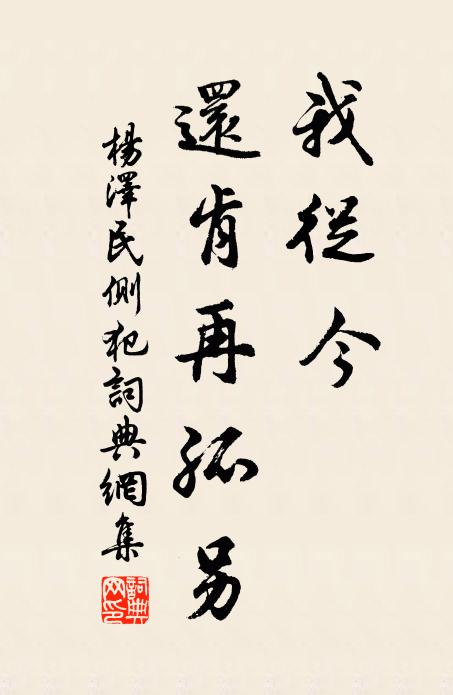 我從今
還肯再孤另
楊澤民側犯詞典網集
詞典网印